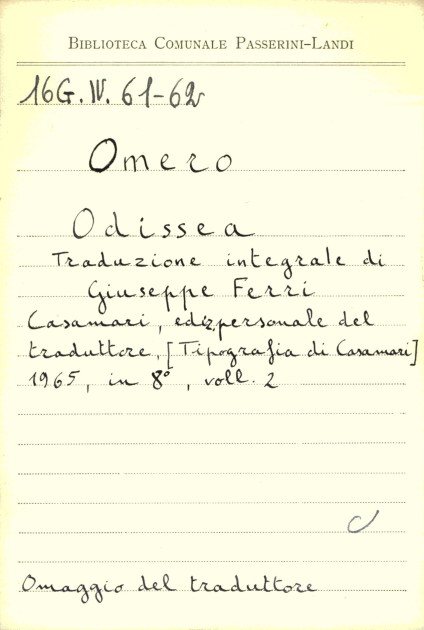 BIBLIOTECA COMUNALE PASSERINI-LANDI
16G.IV.61-62
Omero
Odissea
Traduzione integrale di
Giuseppe Ferri
Casamari, ediz. personale del
traduttore, [Tipografia di Casamari]
1965, in 8°, voll. 2
Omaggio del traduttore